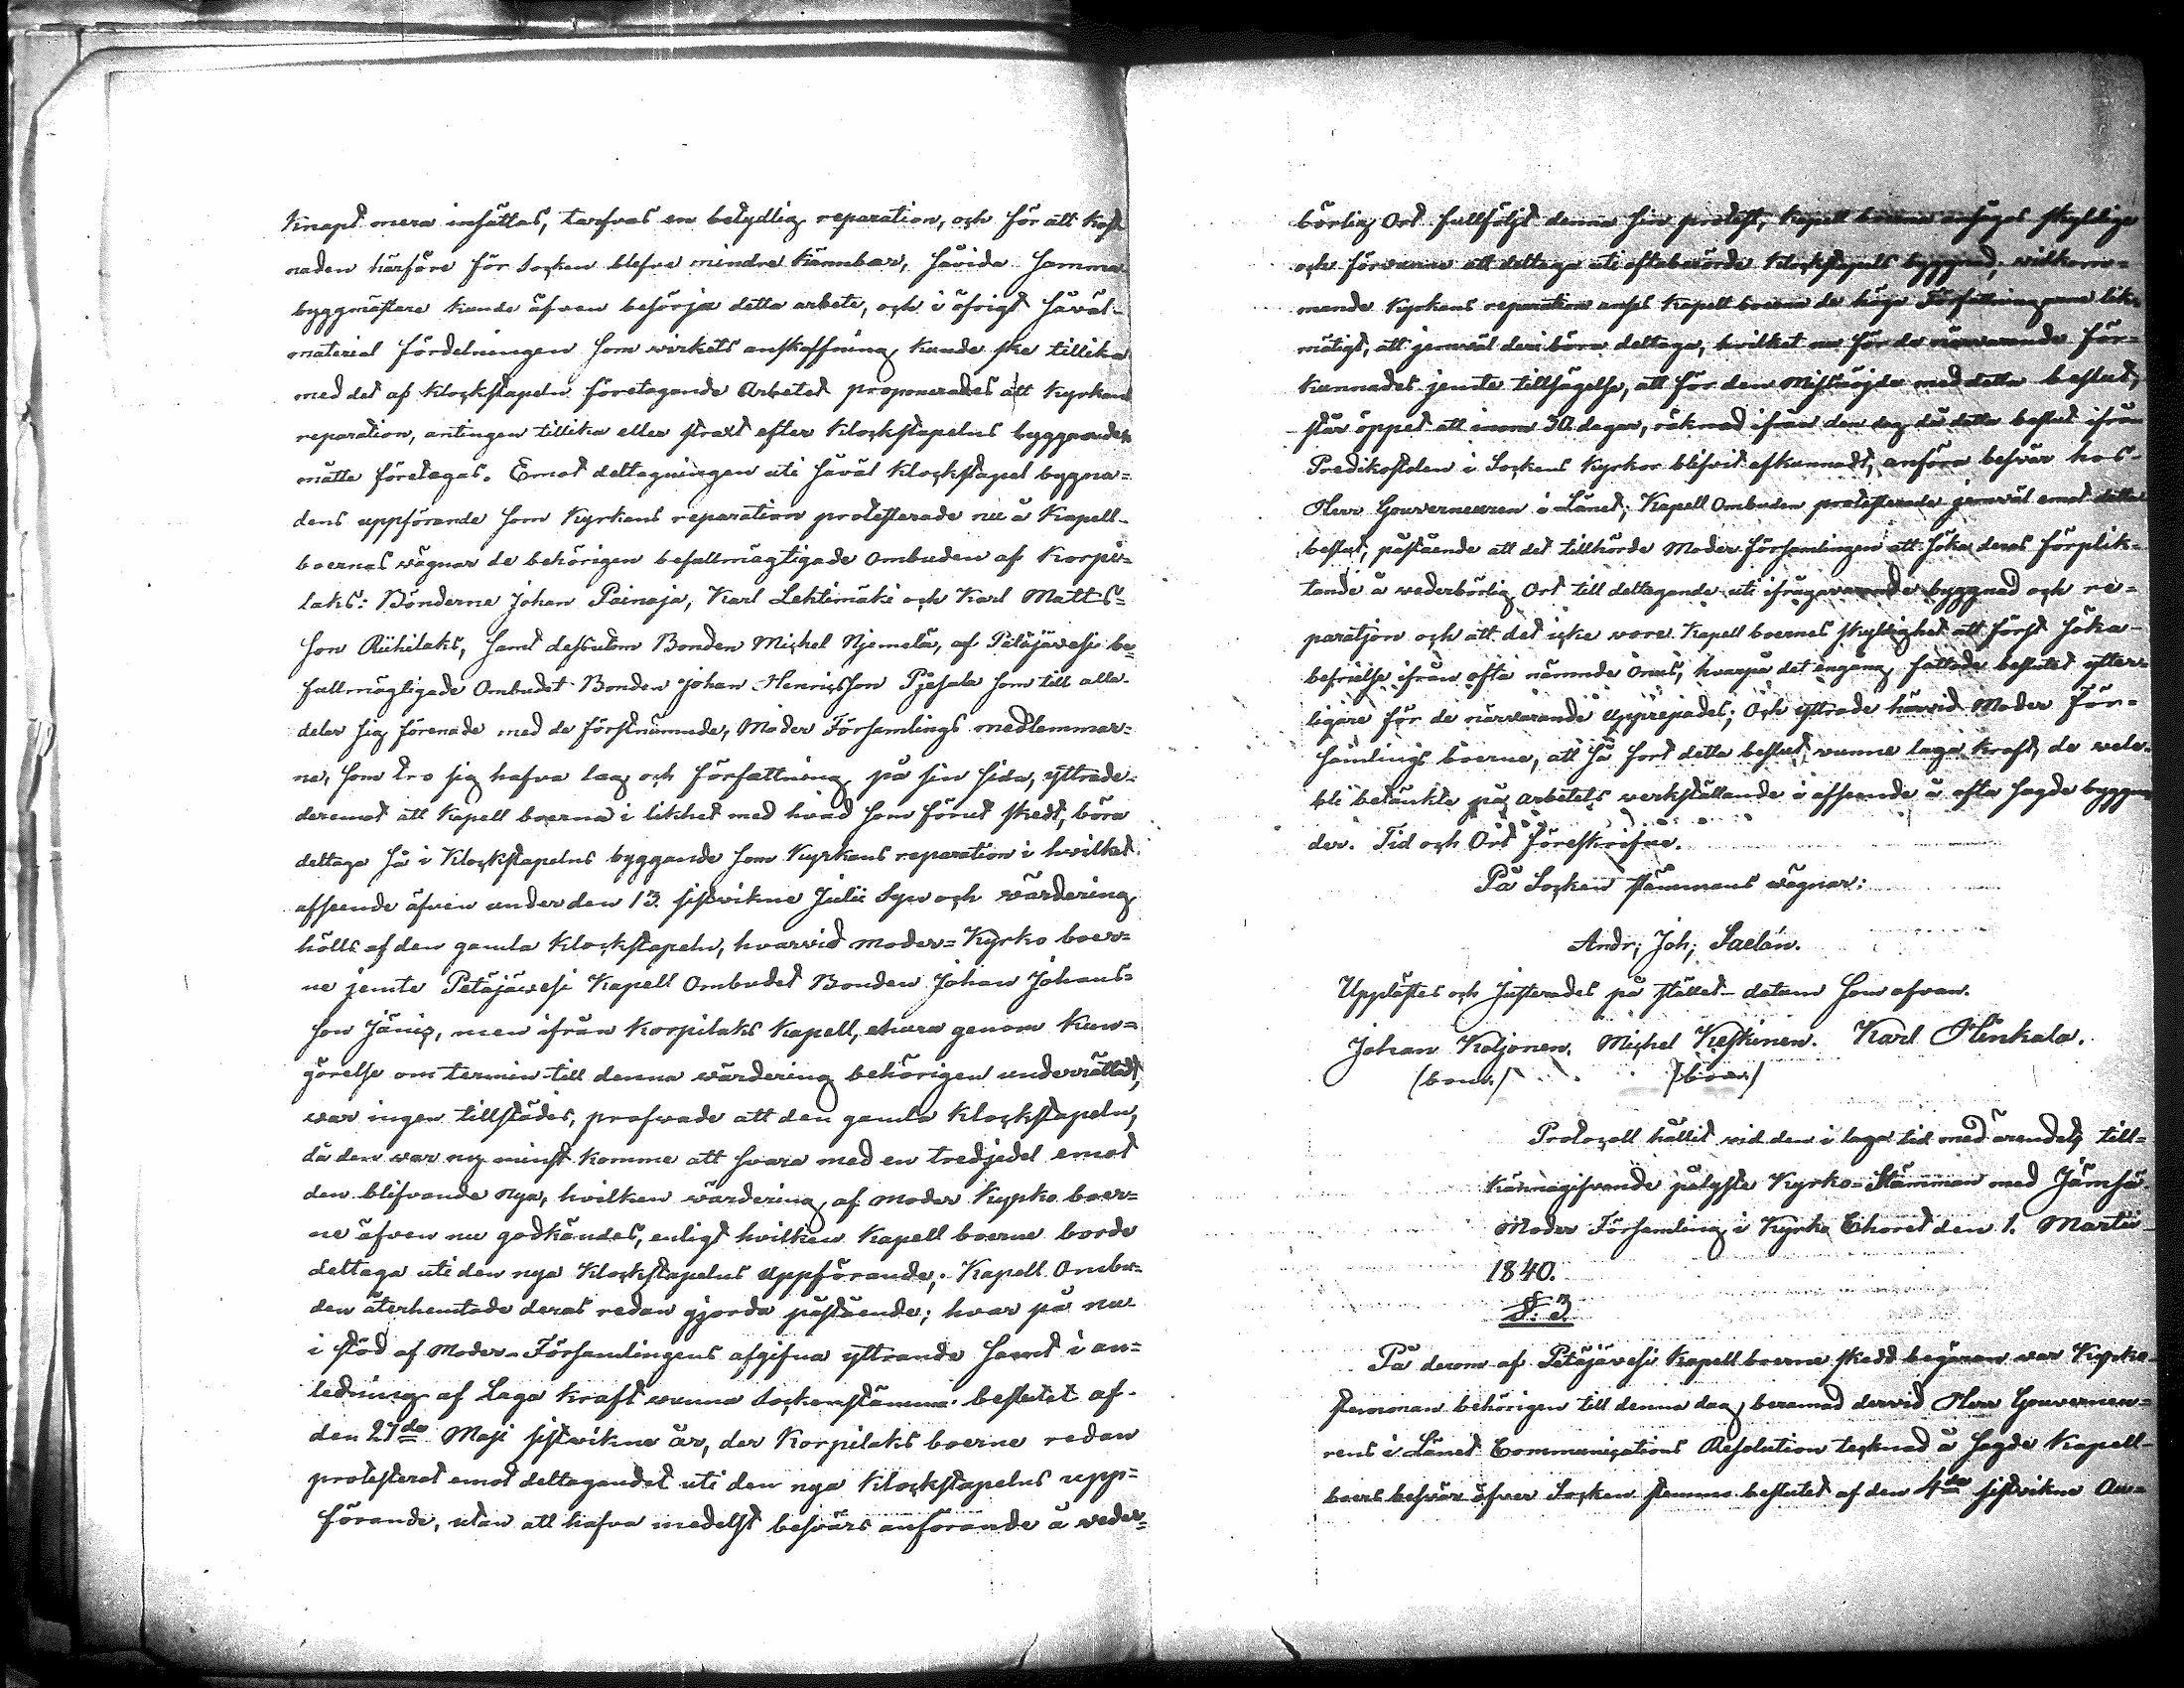 Knapt mera insättas, tarfvas en betydlig reparation, och för att Kost
naden härföre för Socken blefve mindre Kännbar, såvida samma
byggmästare kunde äfven besörja detta arbete, och i öfrigt såväl
material fördelningen som virkets anskaffning kunde ske tillika
med det af Klockstapeln företagande Arbetet proponerades att Kyrkans
reparation, antingen tillika eller straxt efter Klockstapelns byggnaden
måtte företagas. Emot deltagningen uti såväl Klockstapel byggna=
dens uppförande som Kyrkans reparation protesterade nu å Kapell-
boernas vägnar de behörigen befullmägtigade Ombuden af Korpi-
laks: Bönderne Johan Painaja, Karl Lehtimäki och Karl Matts=
son Riihilaks, samt dessutom Bonden Michel Njemelä, af Petäjävesi be=
fullmägtigade Ombudet Bonden Johan Henricsson Pjesala som till alla
delar sig förenade med de förstnämnde, Moder Församlings medlemmar=
ne, som tro sig hafva lag och författning på sin sida, yttrade
deremot att Kapell boerna i likhet med hvad som förut skedt, böra
deltaga så i Klockstapelns byggande som Kyrkans reparation i hvilket
afseende äfven under den 13. sistvikne Julii Syn och värdering
hölls af den gamla Klockstapeln, hvarvid moder=Kyrko boer=
ne jemte Petäjävesi Kapell Ombudet Bonden Johan Johans=
son Jänis, men ifrån Korpilaks Kapell, ehuru genom Kun=
görelse om termin till denna värdering behörigen underrättad,
var ingen tillstädes, profvade att den gamla Klockstapeln,
då den var ny minst komme att svara med en tredjedel emot
den blifvande nya, hvilken värdering af moder Kyrko boer=
ne äfven nu godkändes, enligt hvilken Kapell boerne borde
deltaga uti den nya Klockstapelns uppförande; Kapell Ombu=
den återhemtade deras redan gjorda påstående; hvar på nu
i stöd af Moder-Församlingens afgifna yttrande samt i an=
ledning af Laga Kraft vunna Sockenstämma beslutet af
den 27de Maji sistvikne år, der Korpilaks boerne redan
protesterat emot deltagandet uti den nya Klockstapelns upp=
förande, utan att hafva medelst besvärs anförande å veder=
börlig Ort fullföljt denna sin protest, Kapell boerna anseges skyldige
och förvunne att deltaga uti oftaberörde Klockstapels byggnad, vidkom=
mande Kyrkans reparation anses Kapell boerna de höga Författningarna lik=
mätigt, att jemväl deri böra deltaga, hvilket nu för de närvarande för=
kunnades jemte tillsägelse, att för den Missnöjde med detta beslut,
står öppet att inom 30 dagar, räknad ifrån den dag då detta beslut ifrån
Predikostolen i Sockens Kyrkor blifvit afkunnadt, anföra besvär hos
Herr Gouverneuren i Länet; Kapell Ombuden protesterade jemväl emot detta
beslut, påstående att det tillhörde Moder Församlingen att söka deras förplik=
tande å vederbörlig Ort till deltagande uti ifrågavarande byggnad och re=
paration och att det icke vore Kapell boernes skyldighet att först söka
befrielse ifrån ofta nämnde onus, hvarpå det engång fattade beslutet ytter=
ligare för de närvarande upprepades; Och yttrade härvid Moder För=
samlings boerne, att så fort detta beslut vunne laga kraft, de vele
bli betänkte på arbetets verkställande i afseende å ofta sagde byggna
der. Tid och Ort föreskrifne.
På Socken stämmans vägnar:
Andr; Joh; Saelán.
Upplästes och Justerades på stället datum som ofvan.
Johan Koljonen. Michel Keskinen. Karl Hinkala.
(bom.) (bom.)
Protocoll hållit vid den i laga tid med ärendets till=
kännagifvande pålyste Kyrko=Stämman med Jämsä
Moder Församling i Kyrko Choret den 1. Martii
1840.
§. 3
På derom af Petäjävesi Kapell boerne skedd begäran var Kyrko
stemman behörigen till denna dag beramad dervid Herr Gouverneu=
rens i Länet Communications Resolution tecknad å sagde Kapell
boers besvär öfver Socken stemma beslutet af den 4de sistvikne Au=